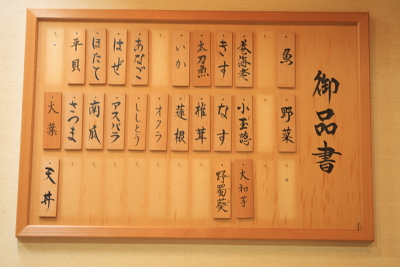 御品書
魚
巻海老
きす
太刀魚
いか
あなご
はぜ
ほたて
平貝
野菜
小玉葱
なす
椎茸
蓮根
オクラ
ししとう
アスパラ
南瓜
さつま
大葉
大和芋
野蜀葵
天丼